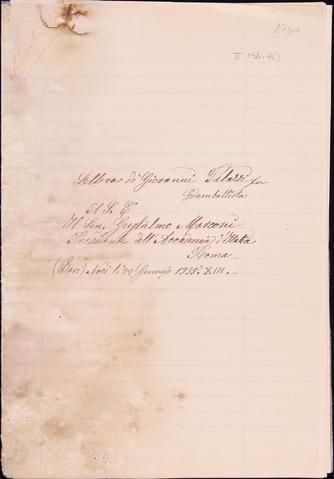 1740
Lettera di Giovanni Talazzi fu
Giambattista
A S. E.
Il Sen. Guglielmo Marconi
Presidente dell'Accademia d'Italia
Roma
(Bari) Noci li Gennaio 1935. XIII. –